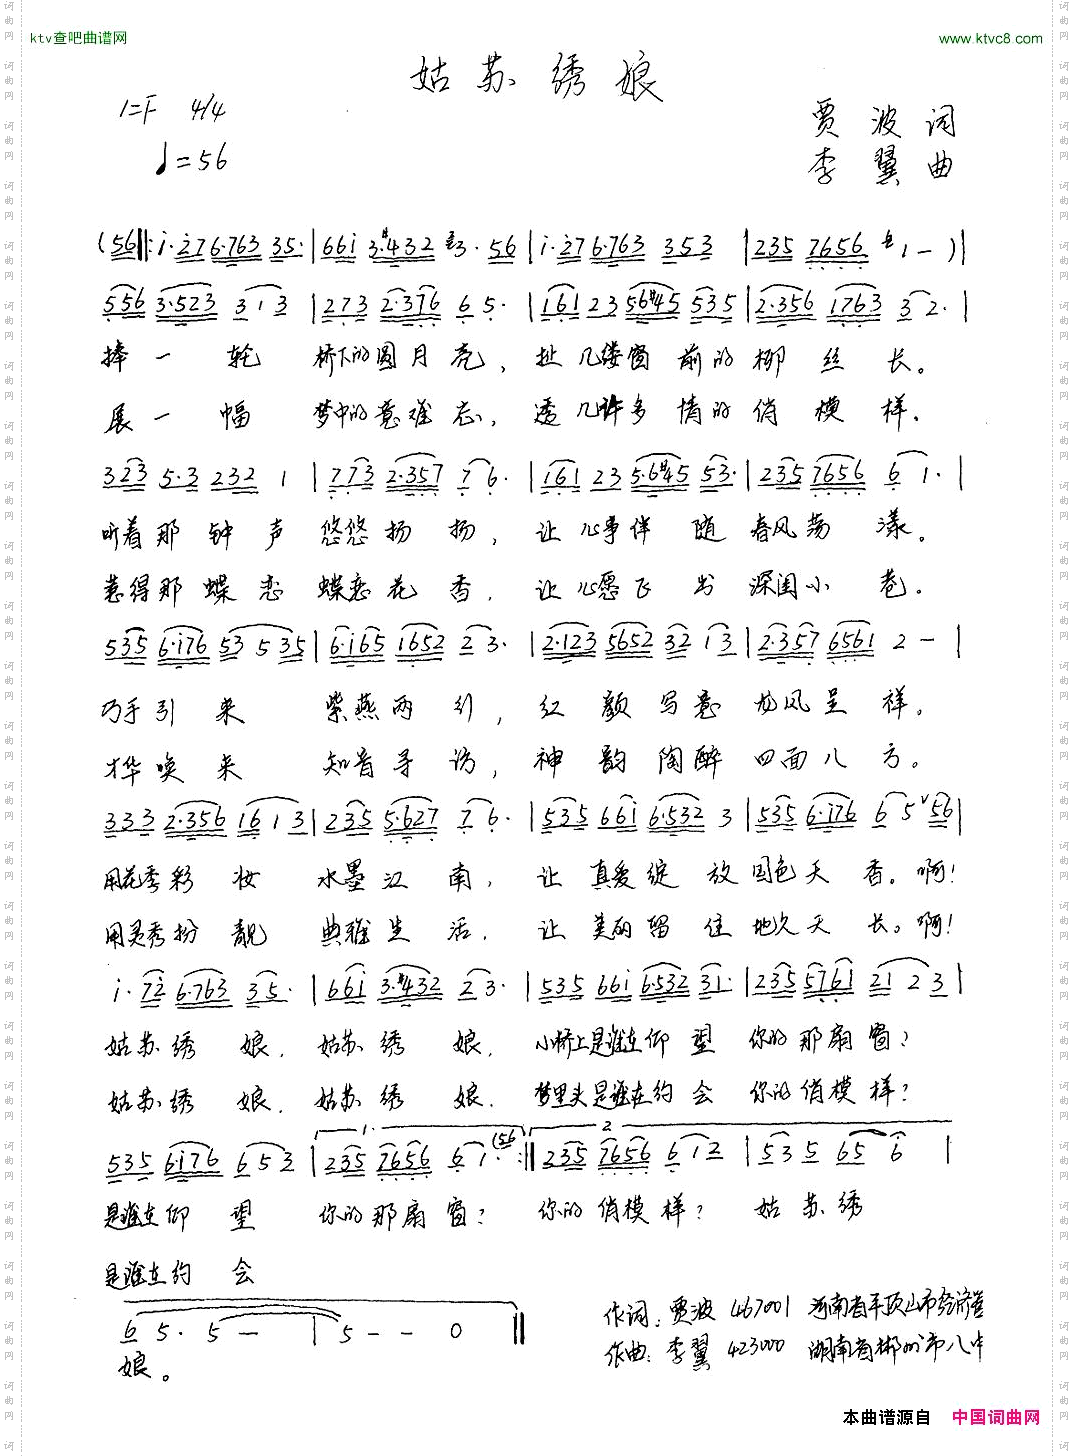 ktv查吧曲谱网
www.ktvc8.com
姑苏绣娘
1=F 4/4
♩=56
贾波词
李翼曲
(56‖: i·i76·763 35·|66i 3·#432 3·56|i·i76·763 353|235 7656 1-)|
556 3·523 313|273 2·376 65·|161 23 56#45 535|2·356 1763 32·|
捧一轮 桥下的圆月亮，扯几缕窗前的柳丝长。
展一幅 梦中的意难忘，透几许多情的俏模样。
323 5·3 232 1|773 2·357 76·|161 23 5·6#45 53·|235 7656 61·|
听着那钟声悠悠扬扬，让心事伴随春风荡漾。
惹得那蝶恋蝶恋花香，让心愿飞出深闺小巷。
535 6·i76 53 535|6·i65 1652 23·|2·123 5652 32 13|2·357 6561 2-|
巧手引来 紫燕两行，红颜写意龙凤呈祥。
才华唤来 知音寻访，神韵陶醉四面八方。
333 2·356 16 13|235 5·627 76·|535 66i 6·532 3|535 6·i76 65 56|
用花季彩妆水墨江南，让真爱绽放国色天香。啊！
用灵秀扮靓典雅生活，让美丽留住地久天长。啊！
i·7i 6·763 35·|66i 3·#432 23·|535 66i 6·532 31·|235 5761 21 23|
姑苏绣娘，姑苏绣娘，小桥上是谁在仰望你的那扇窗？
姑苏绣娘，姑苏绣娘，梦里头是谁在约会你的俏模样？
1.
2.
535 6i76 653|235 7656 61· (56:‖235 7656 612|535 65 6|
是谁在仰望你的那扇窗？你的俏模样？姑苏绣
是谁在约会
65·5-|5--0‖
娘。
作词：贾波 467001 河南省平顶山市经济
作曲：李翼 423000 湖南省郴州市八中
本曲谱源自 中国词曲网